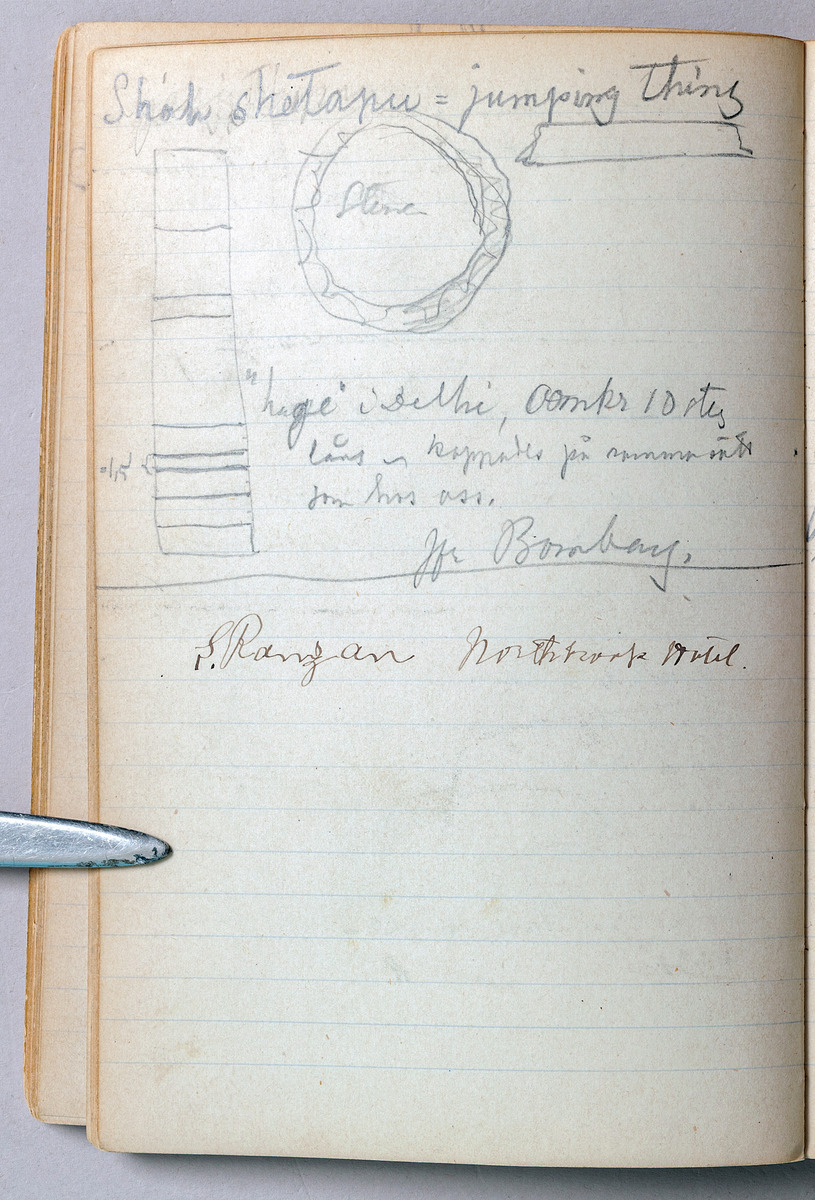 Shah shetapu = jumping thing
Stenen
"hage" i Delhi, omkr 10 steg
lång koppades på samma sätt
som hos oss.
Jfr Bombay.
S. Rangan Northbrook Hotel.